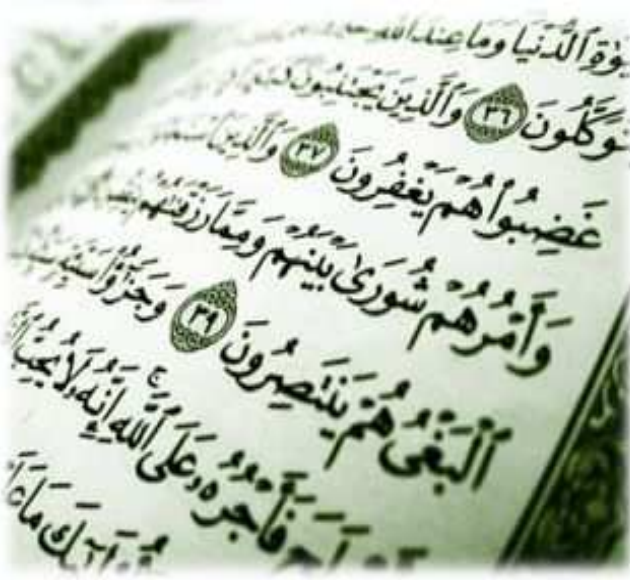 ٱلدُّنْيَا وَمَا عِندَ ٱللَّهِ
ـوَكَّلُونَ ٣٦ وَٱلَّذِينَ يَجْتَنِبُونَ
غَضِبُوا۟ هُمْ يَغْفِرُونَ ٣٧ وَٱلَّذِينَ
وَأَمْرُهُمْ شُورَىٰ بَيْنَهُمْ وَمِمَّا رَزَقْنَٰهُمْ
ٱلْبَغْىُ هُمْ يَنتَصِرُونَ ٣٩ وَجَزَٰٓؤُا۟ سَيِّئَةٍ
فَأَجْرُهُۥ عَلَى ٱللَّهِ ۚ إِنَّهُۥ لَا يُحِبُّ
مَا